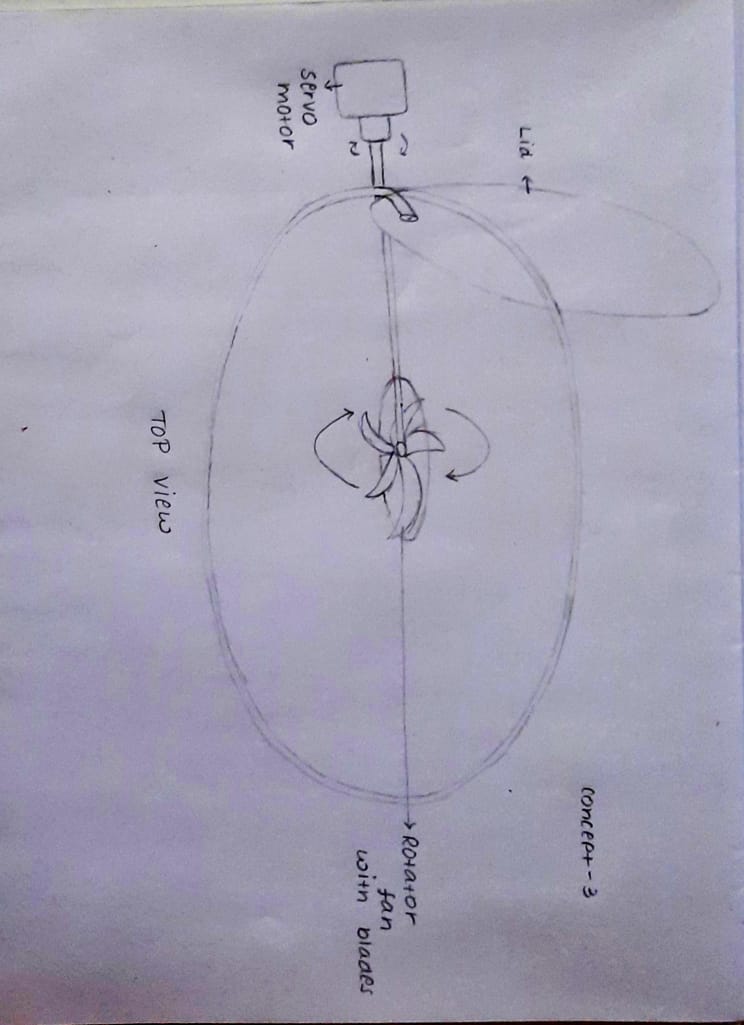 concept-3
Lid
Rotator
fan
with blades
servo
motor
TOP view